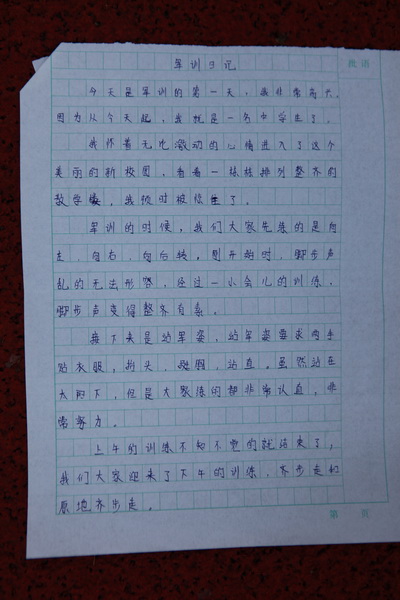 军训日记
批语
今天是军训的第一天，我非常高兴，
因为从今天起，我就是一名中学生了。
我怀着无比激动的心情进入了这个
美丽的新校园，看着一栋栋排列整齐的
教学楼，我顿时被惊呆了。
军训的时候，我们大家先练的是向
左，向右，向后转，刚开始时，脚步声
乱的无法形容，经过一小会儿的训练，
脚步声变得整齐有条。
接下来是站军姿，站军姿要求两手
贴衣服，抬头，挺胸，站直。虽然站在
太阳下，但是大家练的都非常认真，非
常努力。
上午的训练不知不觉的就结束了，
我们大家迎来了下午的训练，齐步走和
原地齐步走。
第 页